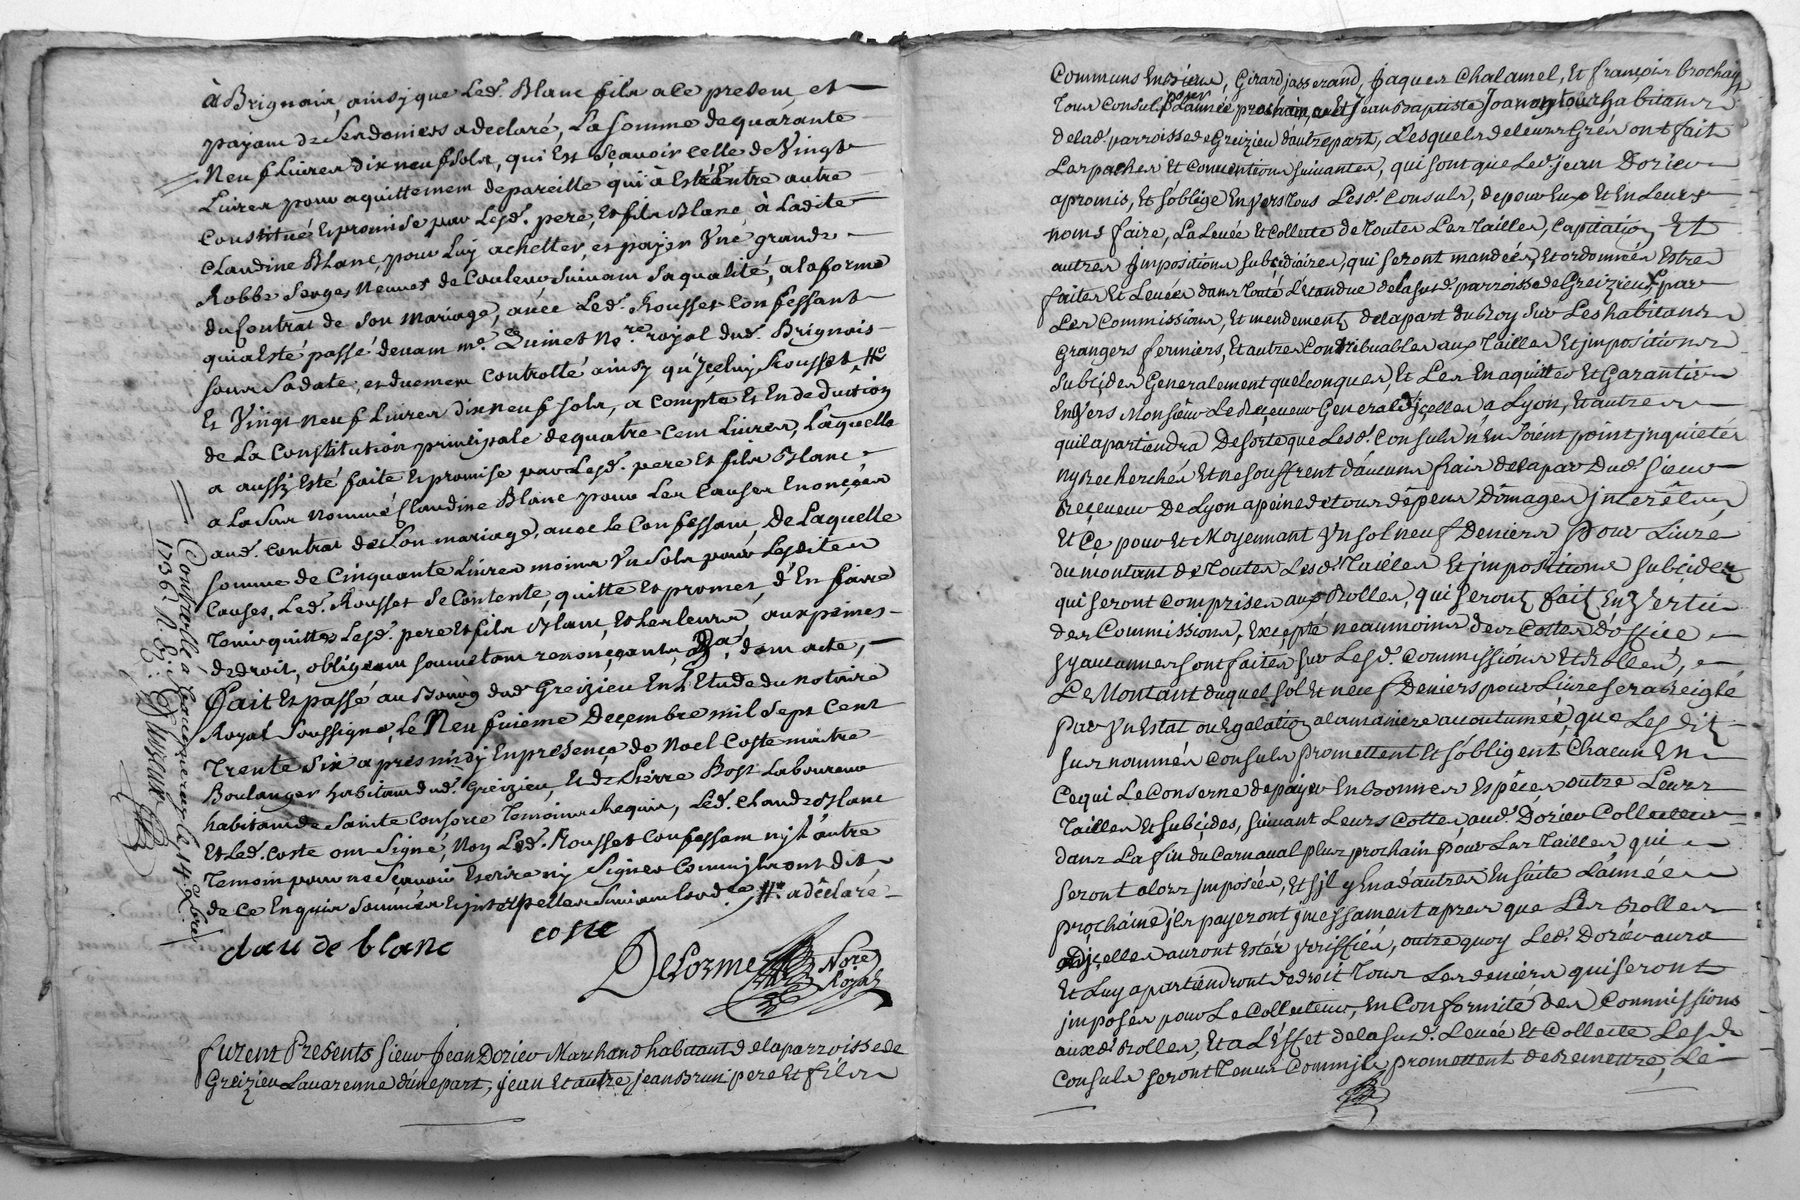 à Brignais, ainsy que Led. Blanc fils a ce presen, et
payam de ses deniers a declaré, La somme de quarante
Neuf Livres dix neuf sols, qui Est sçavoir celle de Vingt
Livres pour aquittemem de pareille qui a Esté Entre autre
Constitué et promise par Lesd. pere, et fils Blanc, à Ladite
Claudine Blanc, pour Luy achetter, et payer Vne grande
Robbe Serges Neuves de Couleur Suivam Sa qualité, a la forme
du Contrat de Son mariage, avec Led. Rousset Confessant
qui a Esté passé devam me. Quinet Nore. royal dud. Brignais
sous Sa date, et duemem Controllé ainsy qu'yceluy Rousset #e
Et Vingt neuf Livres dix neuf sols, a compte Et En deduction
de La Constitution principale de quatre Cent Livres, Laquelle
a aussy Esté faite Et promise par Lesd. pere Et fils Blanc
a La Sus Nommé Claudine Blanc pour Les Causes Enonçées
aud. contrat de Son mariage, avec le Confessam, De Laquelle
somme de Cinquante Livres moins Vn Sols pour Lesdites
Causes, Led. Rousset Se Contente, quitte Et promet, d'En faire
Tenir quittes Lesd. pere Et fils Blanc, Et Les Leurs, aux peines
de droit, obligeam soumetam renonçeant, &a, dom acte,
Fait Et passé au Bourg dud. Greizieu En L'Etude du notaire
Royal Soussigné, le Neufuieme Decembre mil Sept Cent
Trente Six apres midy En presençe de Noel Coste maitre
Boulanger habitam dud. Greizieu, Et de Pierre Bost Laboureur
habitam de Sainte Consorce Temoins Requis, Led. Claude Blanc
Et Led. Coste om Signé, Non Led. Rousset Confessam ny L'autre
Temoin pour ne Sçavoir Escrire ny Signer Comm'ils ont dit
de Ce Enquis Sommés Et interpellés Suivam Lord.ce #e a declaré
Controllé à le 14e Xbre
1736
claude blanc
coste
DeLorme
Nore
Royal
furent Presents Sieur Jean Dorieu Marchand habitant de la parroisse de
Greizieu Lavarenne d'une part, Jean Et autre Jean Brun pere Et fils
Communs En biens, Girard Jasserand, Jaques Chalamel, Et françois brochay
Tous Consuls pour L'année prochaine, Et Jean Baptiste Joanon Tous habitans
de lad. parroisse de Greizieu d'autre part, Lesquels de leurs Grés ont fait
Les paches Et Conventions suivantes, qui sont que Led. Jean Dorieu
a promis, Et s'oblige Envers Tous Lesd. Consuls, de pour Eux Et En Leurs
noms faire, La Levée Et Collecte de Toutes Les Tailles, Capitation Et
autres Impositions subsidiaires, qui seront mandées, Et ordonnées Estre
faites Et Levées dans Toute L'étandue de la susd. parroisse de Greizieu, par
Les Commissions, Et mendements de la part du Roy sur Les habitans
Grangers fermiers, Et autres Contribuables aux Tailles Et impositions
subçides Generalement quelconques, Et Les En aquitter Et Garantir
Envers Monsieur Le Reçeveur General d'yçelles a Lyon, Et autres
qu'il apartiendra De sorte que Lesd. Consuls n'En Soient point inquietés
ny Recherchés Et ne souffrent d'aucuns frais de la part Dud. sieur
Reçeveur De Lyon a peine de tous dépens Dômages interêts,
Et Çe pour Et Moyennant Vn sol neuf Deniers Pour Livre
du montant de Toutes Lesd. Tailles Et impositions subçides
qui seront comprises aux Rolles, qui seront fait En Vertu
des Commissions, Exçepté neaumoins des Cottes D'office
sy aucunes sont faites sur Lesd. Commissions Et Rolles,
Le Montant duquel sol Et neuf Deniers pour Livre sera reiglé
Par Vn Estat ou Egalation a la maniere acoutumée, que Lesdits
sus nommés Consuls promettent Et s'obligent Chacun En
Ce qui Le Conserne de payer En bonnes Espèces outre Leurs
Tailles Et subcides, suivant Leurs Cottes, aud. Dorieu Collecteur
dans La fin du Carnaval plus prochain pour Les Tailles qui
seront alors imposées, Et s'jl y En a d'autres En suite L'année
prochaine jls payeront inçessament apres que Les Rolles
d'içelles auront Estés veriffiés, outre quoy Led. Dorieu aura
Et Luy apartiendront de droit Tous Les deniers qui seront
imposés pour Le Collecteur, En Conformité des Commissions
auxd. Rolles, Et a L'Effet de la susd. Levée Et Collecte Lesd.
Consuls seront Tenus Comm'jls promettent de Remettre, Le